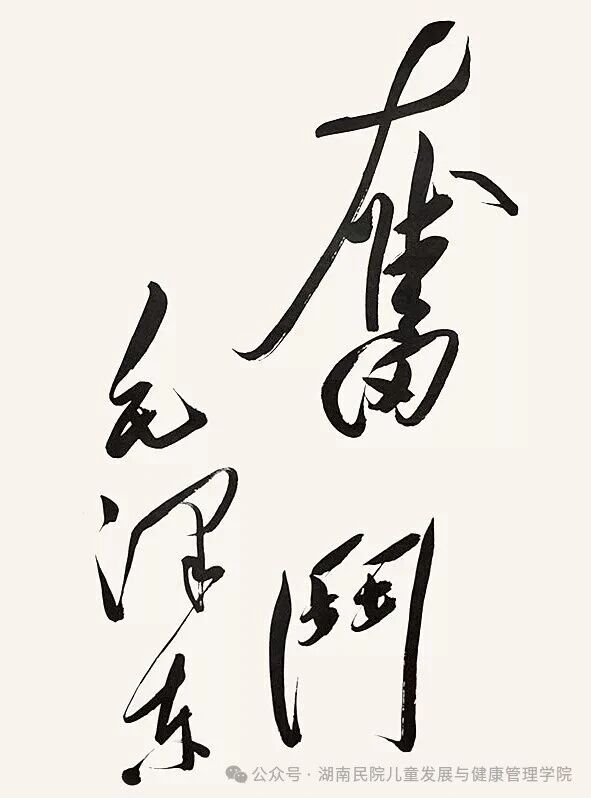 奮鬥
毛泽东
公众号 · 湖南民院儿童发展与健康管理学院